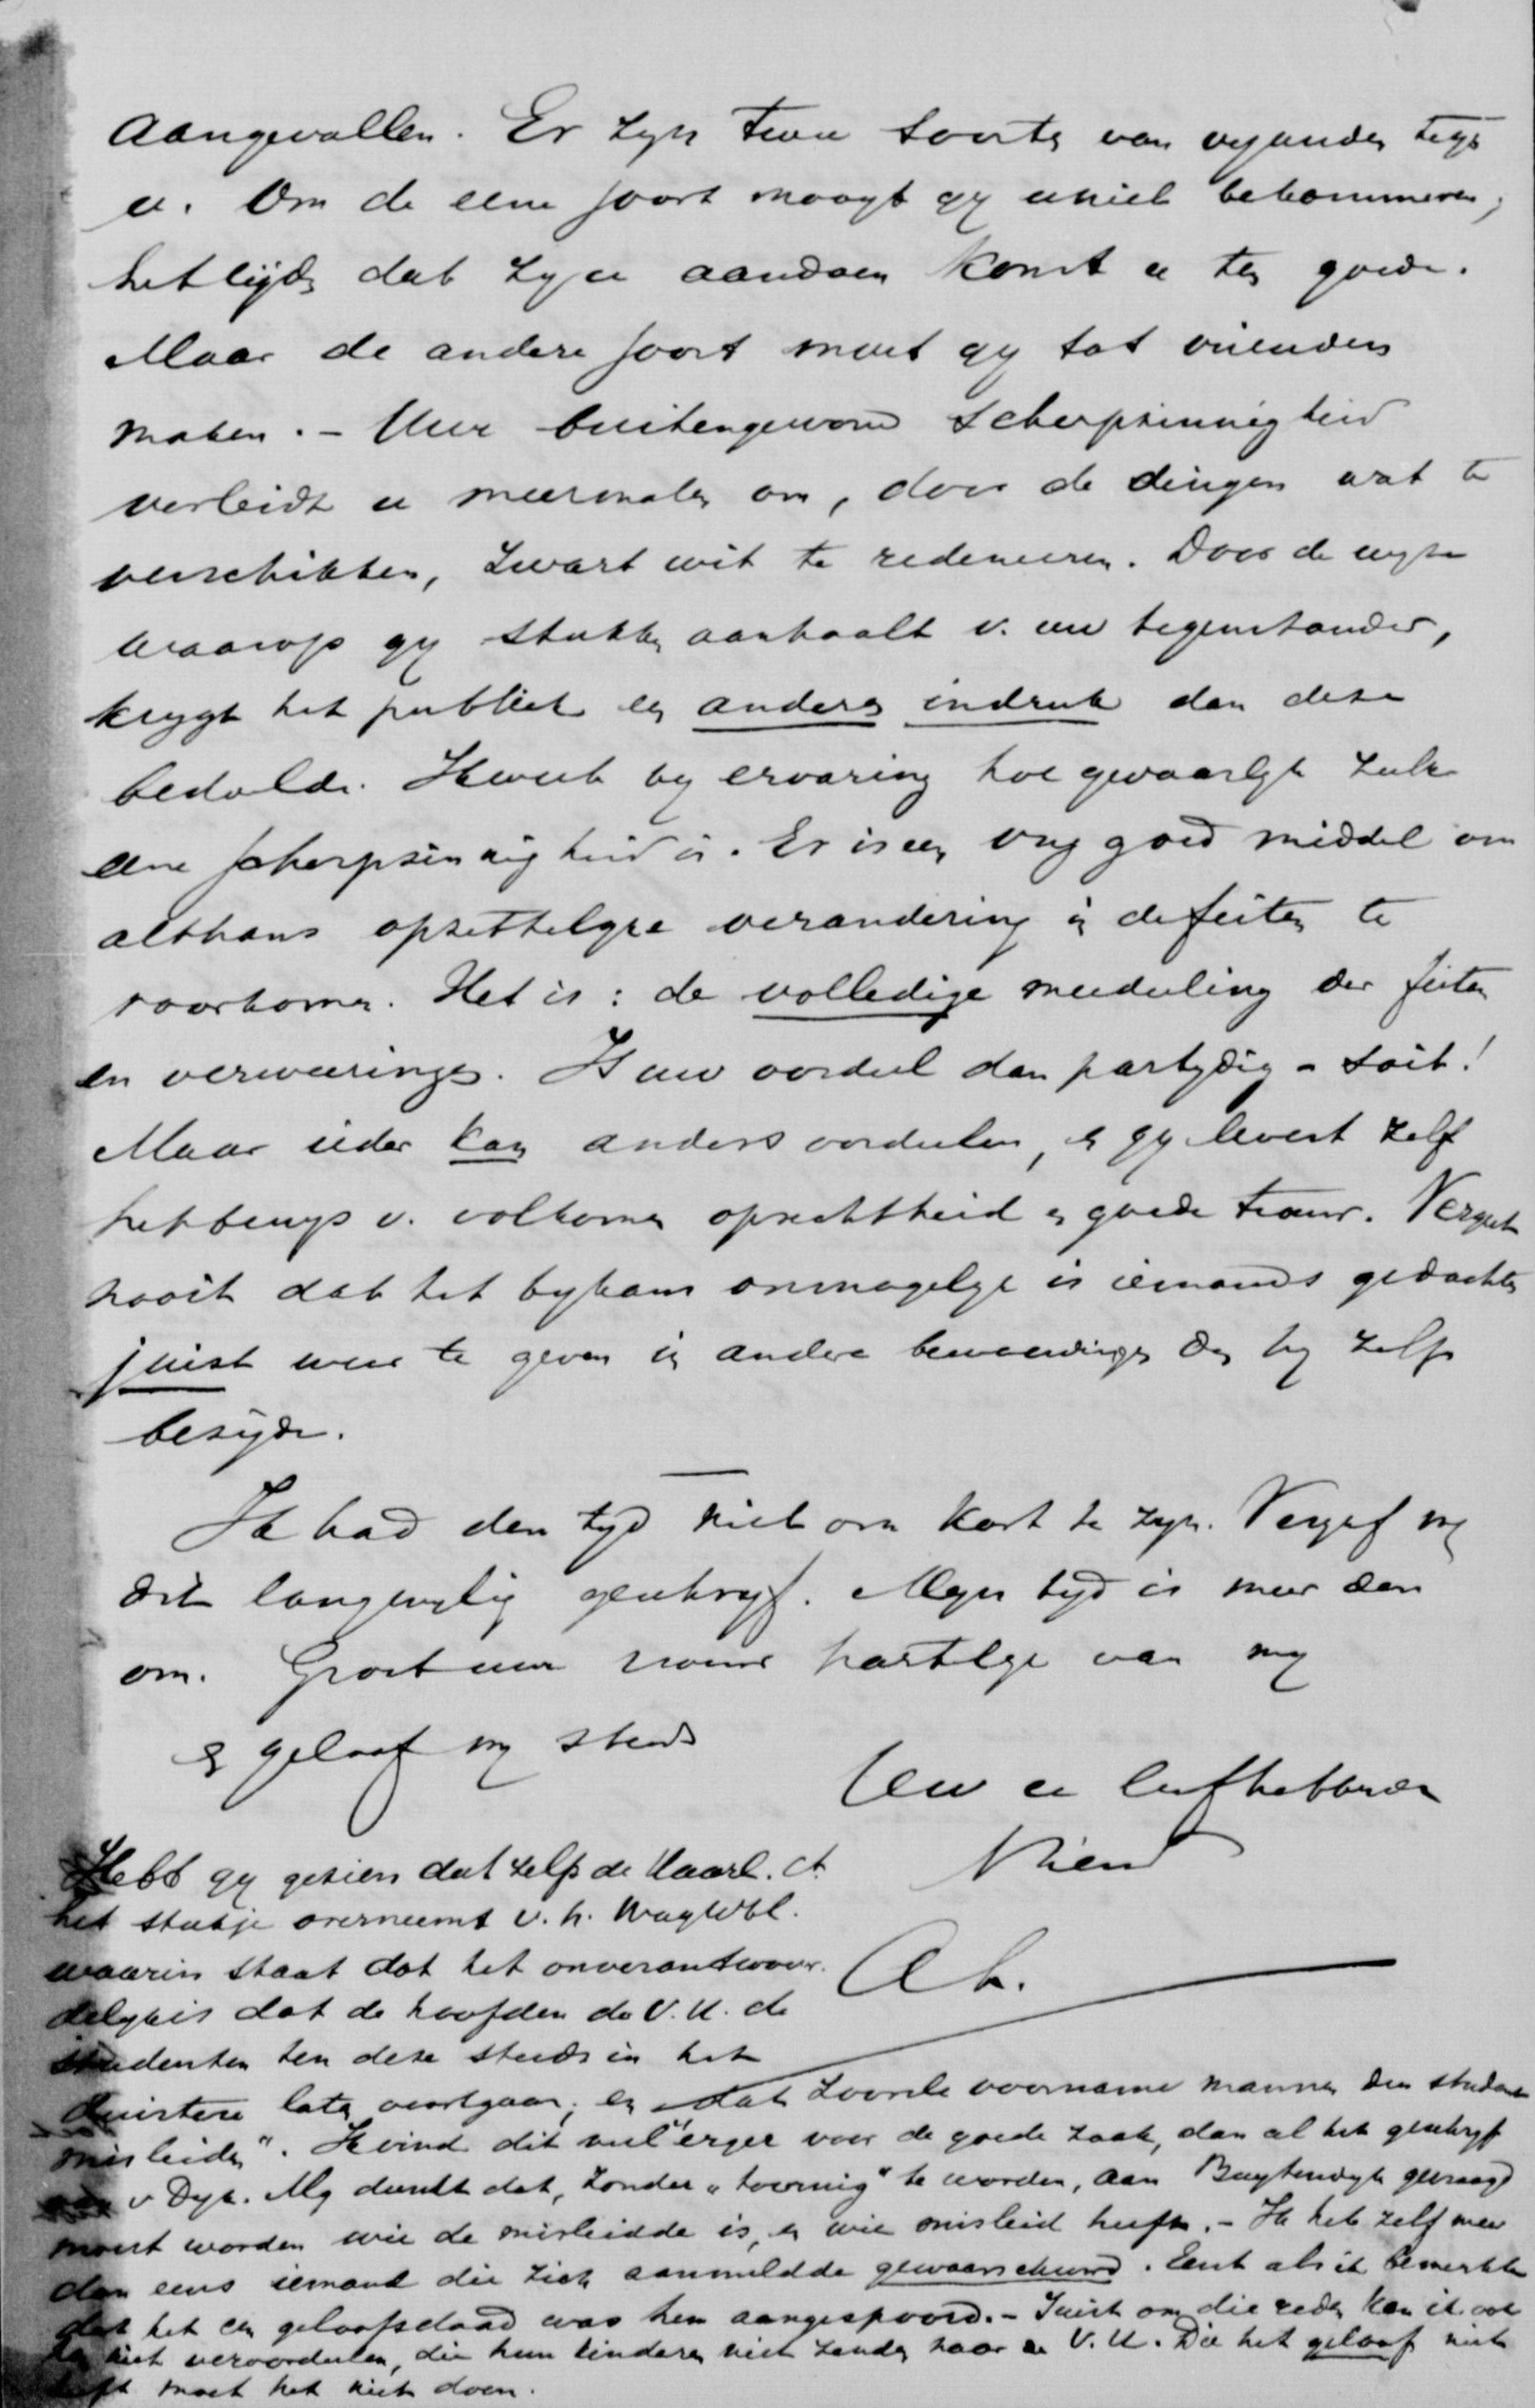 aangevallen. Er zyn twee soorten van vyanden tegen
u. Om de eene soort moogt gy u niet bekommeren;
het lijden dat zy u aandoen komt u ten goede.
Maar de andere soort moet gy tot vrienden
maken. – Uwe buitengewone scherpzinnigheid
verleidt u meermalen om, door de dingen wat te
verschikken, zwart wit te redeneeren. Door de wyze
waarop gy stukken aanhaalt v. uw tegenstander,
krygt het publiek een anderen indruk dan deze
bedoelde. Ik weet by ervaring hoe gevaarlyk zulk
eene scherpzinnigheid is. Er is een goed middel om
althans opzettelyke verandering in de feiten te
voorkomen. Het is: de volledige mededeeling der feiten
en verweeringen. Is uw oordeel dan partydig – soit!
Maar ieder kan anders oordeelen, en gy levert zelf
het bewys v. volkomen oprechtheid en goede trouw. Vergeet
nooit dat het bykans onmogelyk is iemands gedachten
juist weer te geven in andere bewoordingen dan hy zelf
bezigde.
Ik had den tyd niet om kort te zyn. Vergeef my
dit langwylig geschryf. Myn tyd is meer dan
om. Groet uwe vrouw hartelyk van my
en geloof my steeds
Uw u liefhebbende
Vriend
Hebt gy gezien dat zelfs de Haarl. Ct.
het stukje overneemt v. h.
waarin staat dat het onverantwoor-
delyk is dat de hoofden der V.U. de
studenten ten deze steeds in het
duistere laten voortgaan; en dat zoovele voorname mannen den studenten
misleiden". Ik vind dit veel erger voor de goede zaak, dan al het geschryf
v Dyk. My dunkt dat, zonder „toornig" te worden, aan Buytendyk gevraagd
moest worden wie de misleidde is, en wie misleid heeft. – Ik heb zelf meer
dan eens iemand die zich aanmeldde gewaarschuwd. Eerst als ik bemerkte
dat het een geloofsdaad was hem aangespoord. – Juist om die reden kan ik ook
niet veroordeelen, die hun kinderen niet zenden naar de V.U. Die het geloof niet
heeft moet het niet doen.